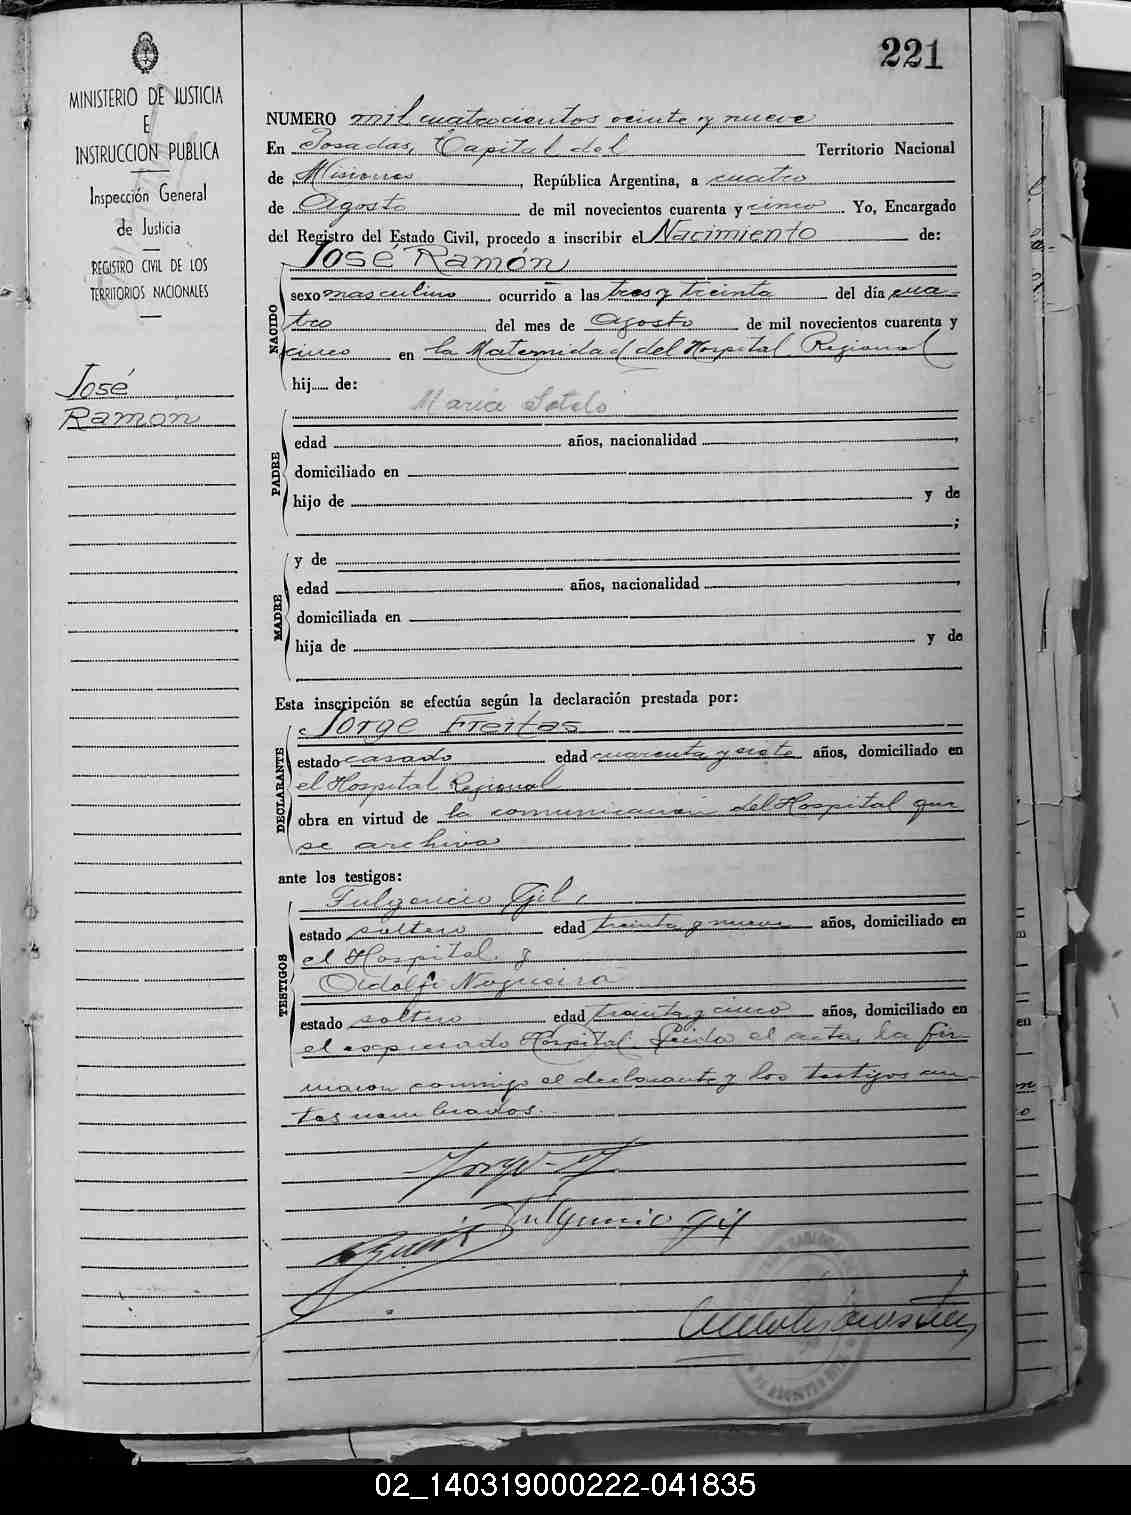 221
MINISTERIO DE JUSTICIA
E
INSTRUCCION PUBLICA
Inspección General
de Justicia
REGISTRO CIVIL DE LOS
TERRITORIOS NACIONALES
José
Ramon
NUMERO mil cuatrocientos veinte y nueve
En Posadas, Capital del Territorio Nacional
de Misiones, República Argentina, a cuatro
de Agosto de mil novecientos cuarenta y cinco Yo, Encargado
del Registro del Estado Civil, procedo a inscribir el Nacimiento de:
José Ramón
NACIDO
sexo masculino ocurrido a las tres y treinta del día cua-
tro del mes de Agosto de mil novecientos cuarenta y
cinco en la Maternidad del Hospital Regional
hij..... de:
Maria Sotelo
PADRE
edad años, nacionalidad ,
domiciliado en
hijo de y de
;
MADRE
y de
edad años, nacionalidad ,
domiciliada en
hija de y de
Esta inscripción se efectúa según la declaración prestada por:
DECLARANTE
Jorge Freitas
estado casado edad cuarenta y siete años, domiciliado en
el Hospital Regional
obra en virtud de la comunicacion del Hospital que
se archiva
ante los testigos:
TESTIGOS
Fulgencio Gil,
estado soltero edad treinta y nueve años, domiciliado en
el Hospital y
Adolfo Nogueira
estado soltero edad treinta y cinco años, domiciliado en
el expresado Hospital. Leida el acta, la fir-
maron conmigo el declarante y los testigos an-
tes nombrados.
Fulgencio Gil
02_140319000222-041835